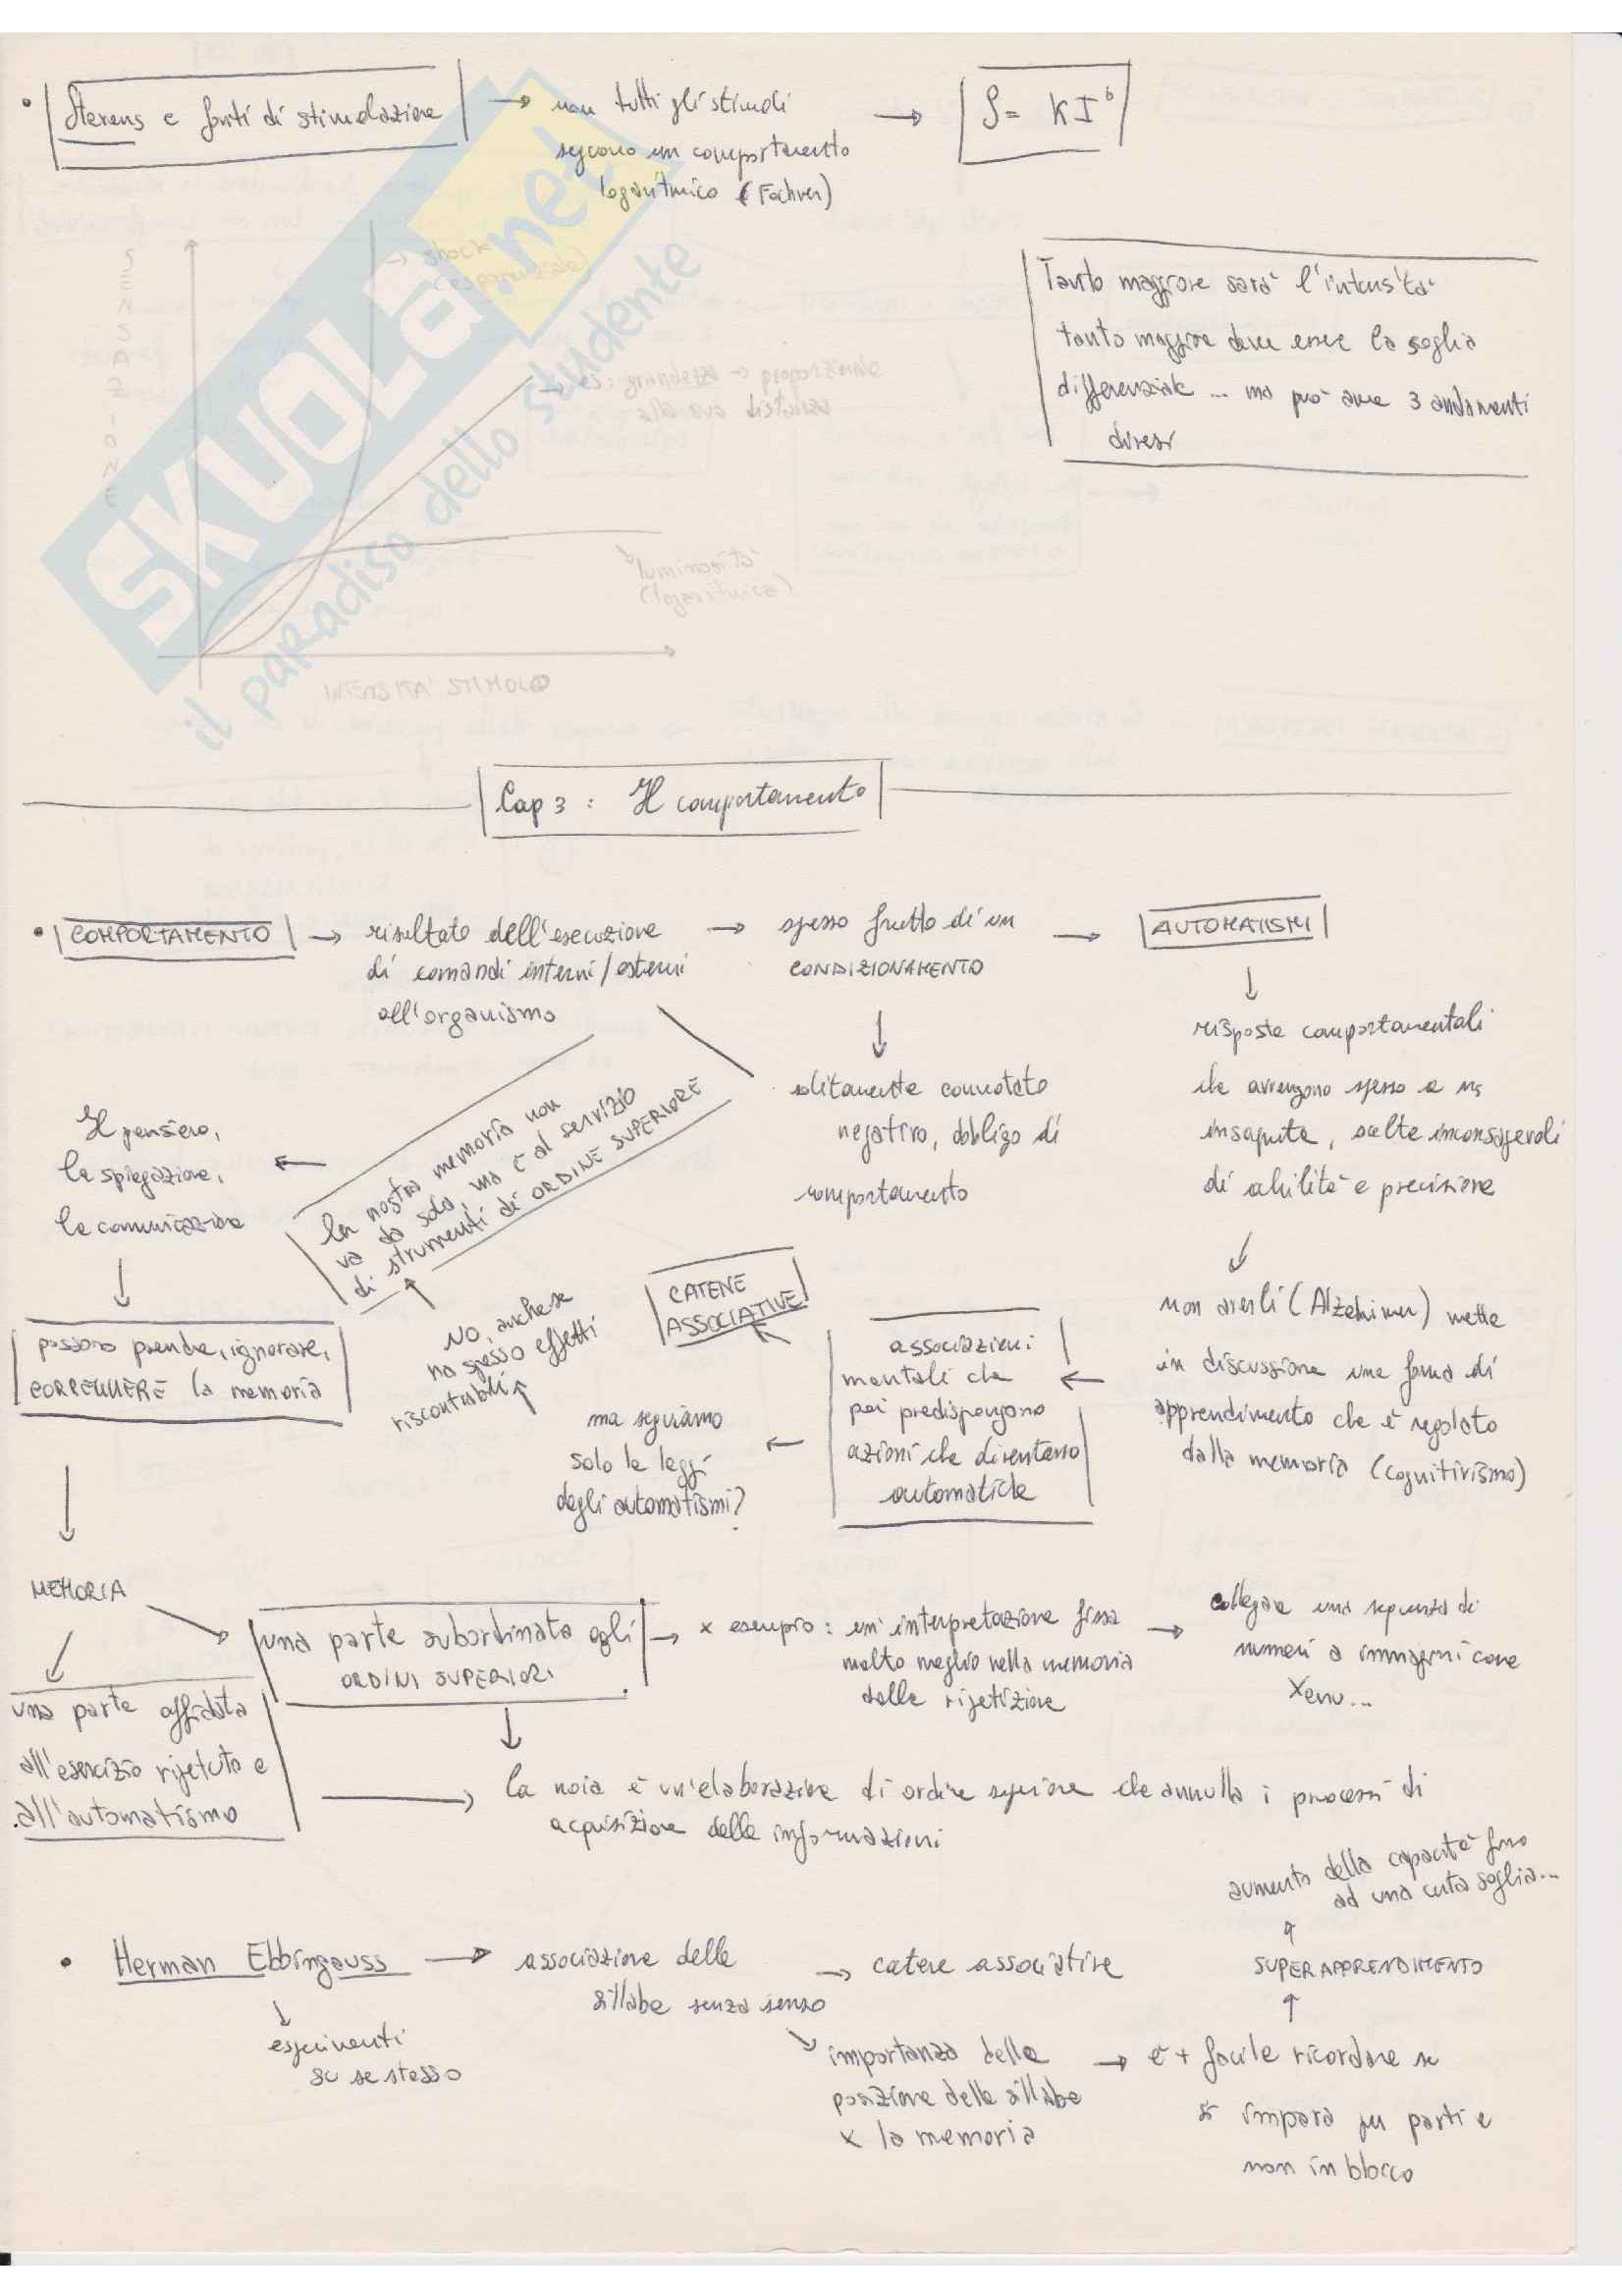 • Stevens e fonti di stimolazione → non tutti gli stimoli
seguono un comportamento
logaritmico (Fechner)
→ S = KI^b
SENSAZIONE
→ shock
(esponenziale)
→ es: grandezza → proporzionale
alla sua distanza
luminosità
(logaritmica)
INTENSITA' STIMOLO
Tanto maggiore sarà l'intensità
tanto maggiore deve essere la soglia
differenziale ... ma può avere 3 andamenti
diversi
SKUOLA.net
il paradiso dello studente
Cap 3 : Il comportamento
• COMPORTAMENTO → risultato dell'esecuzione
di comandi interni/esterni
all'organismo
→ spesso frutto di un
CONDIZIONAMENTO
→ AUTOMATISMI
↓
solitamente connotato
negativo, obbligo di
comportamento
↓
risposte comportamentali
che avvengono spesso a ns
insaputa, scelte inconsapevoli
di abilità e precisione
↓
non averli (Alzehimer) mette
in discussione una forma di
apprendimento che è regolato
dalla memoria (cognitivismo)
←
associazioni
mentali che
poi predispongono
azioni che diventano
automatiche
CATENE
ASSOCIATIVE
← ma seguiamo
solo le leggi
degli automatismi?
No, anche se
ha spesso effetti
riscontrabili
La nostra memoria non
va da sola, ma è al servizio
di strumenti di ORDINE SUPERIORE
←
Il pensiero,
la spiegazione,
la comunicazione
↓
possono prendere, ignorare,
CORREGGERE la memoria
↓
MEMORIA
una parte subordinata agli
ORDINI SUPERIORI
→ x esempio: un'interpretazione fissa
molto meglio nella memoria
della ripetizione
→ collegare una sequenza di
numeri a immagini come
Xenu...
una parte affidata
all'esercizio ripetuto e
all'automatismo
→ la noia è un'elaborazione di ordine superiore che annulla i processi di
acquisizione delle informazioni
• Herman Ebbingauss → associazione delle
sillabe senza senso
↓
esperimenti
su se stesso
→ catene associative
importanza della
posizione delle sillabe
x la memoria
→ è + facile ricordare se
si impara per parti e
non in blocco
↑
SUPERAPPRENDIMENTO
↑
aumento della capacità fino
ad una certa soglia...